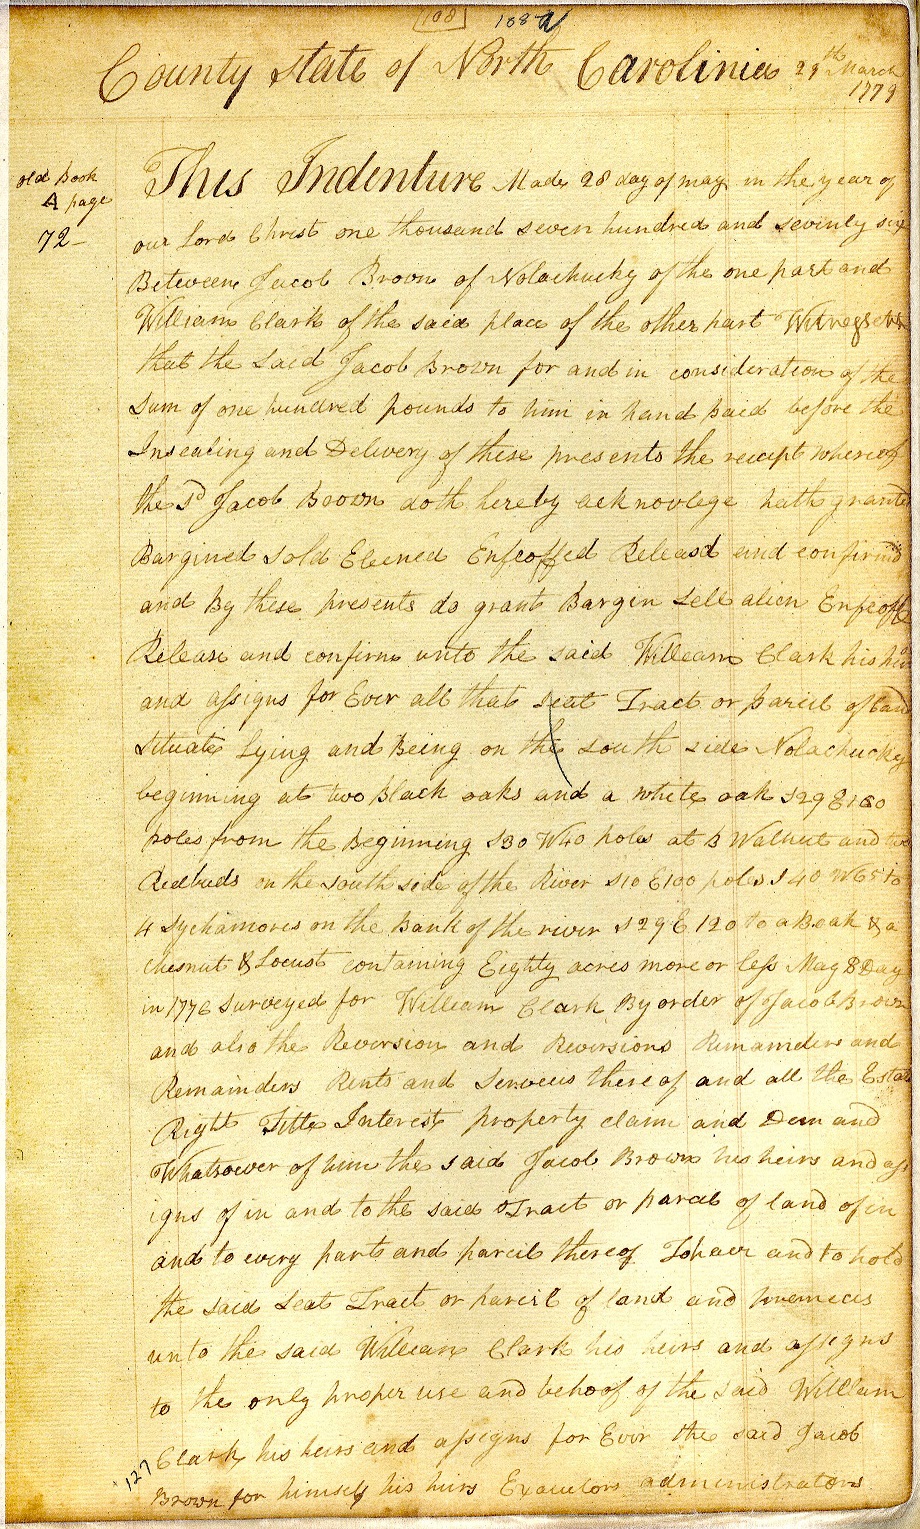 108 108
County State of North Carolinia 29th March
1779
old Book
A page
72
This Indenture Made 28 day of may in the year of
our Lord Christ one thousand seven hundred and sevinly six
Between Jacob Brown of Nolachucky of the one part and
William Clark of the said place of the other part Witnesseth
that the said Jacob Brown for and in consideration of the
Sum of one hundred pounds to him in hand paid before the
Insealing and Delivery of these presents the recept whereof
the sd Jacob Brown doth hereby acknovlege hath granted
Bargined Sold Eliened Enfeoffed Releasd and confirmd
and By these presents do grant Bargin Sell alien Enfeoff
Release and confirm unto the said William Clark his heirs
and assigns for Ever all that Seat Tract or parcil of land
Situate Lying and Being on the south side Nolachucky
beginning at two Black oaks and a white oak S29 E160
poles from the Beginning S30 W40 poles at B Walnut and two
Redbuds on the south side of the River S10 E100 poles S40 W65 to
4 Sychamores on the Bank of the river S29 E120 to a Boak & a
chesnut & Locust containing Eighty acres more or less May 8 Day
in 1776 Surveyed for William Clark By order of Jacob Brown
and also the Reversion and Reversions Remainders and
Remainders Rents and Services thereof and all the Estate
Right Title Interest property claim and Demand
Whatsoever of him the said Jacob Brown his heirs and ass
igns of in and to the said Tract or parcel of land of in
and to every part and parcil thereof Tohave and to hold
the said Seat Tract or parcil of land and premeces
unto the said William Clark his heirs and assigns
to the only proper use and behoof of the said William
Clark his heirs and assigns for Ever the said Jacob
127
Brown for himself his heirs Executors administrators